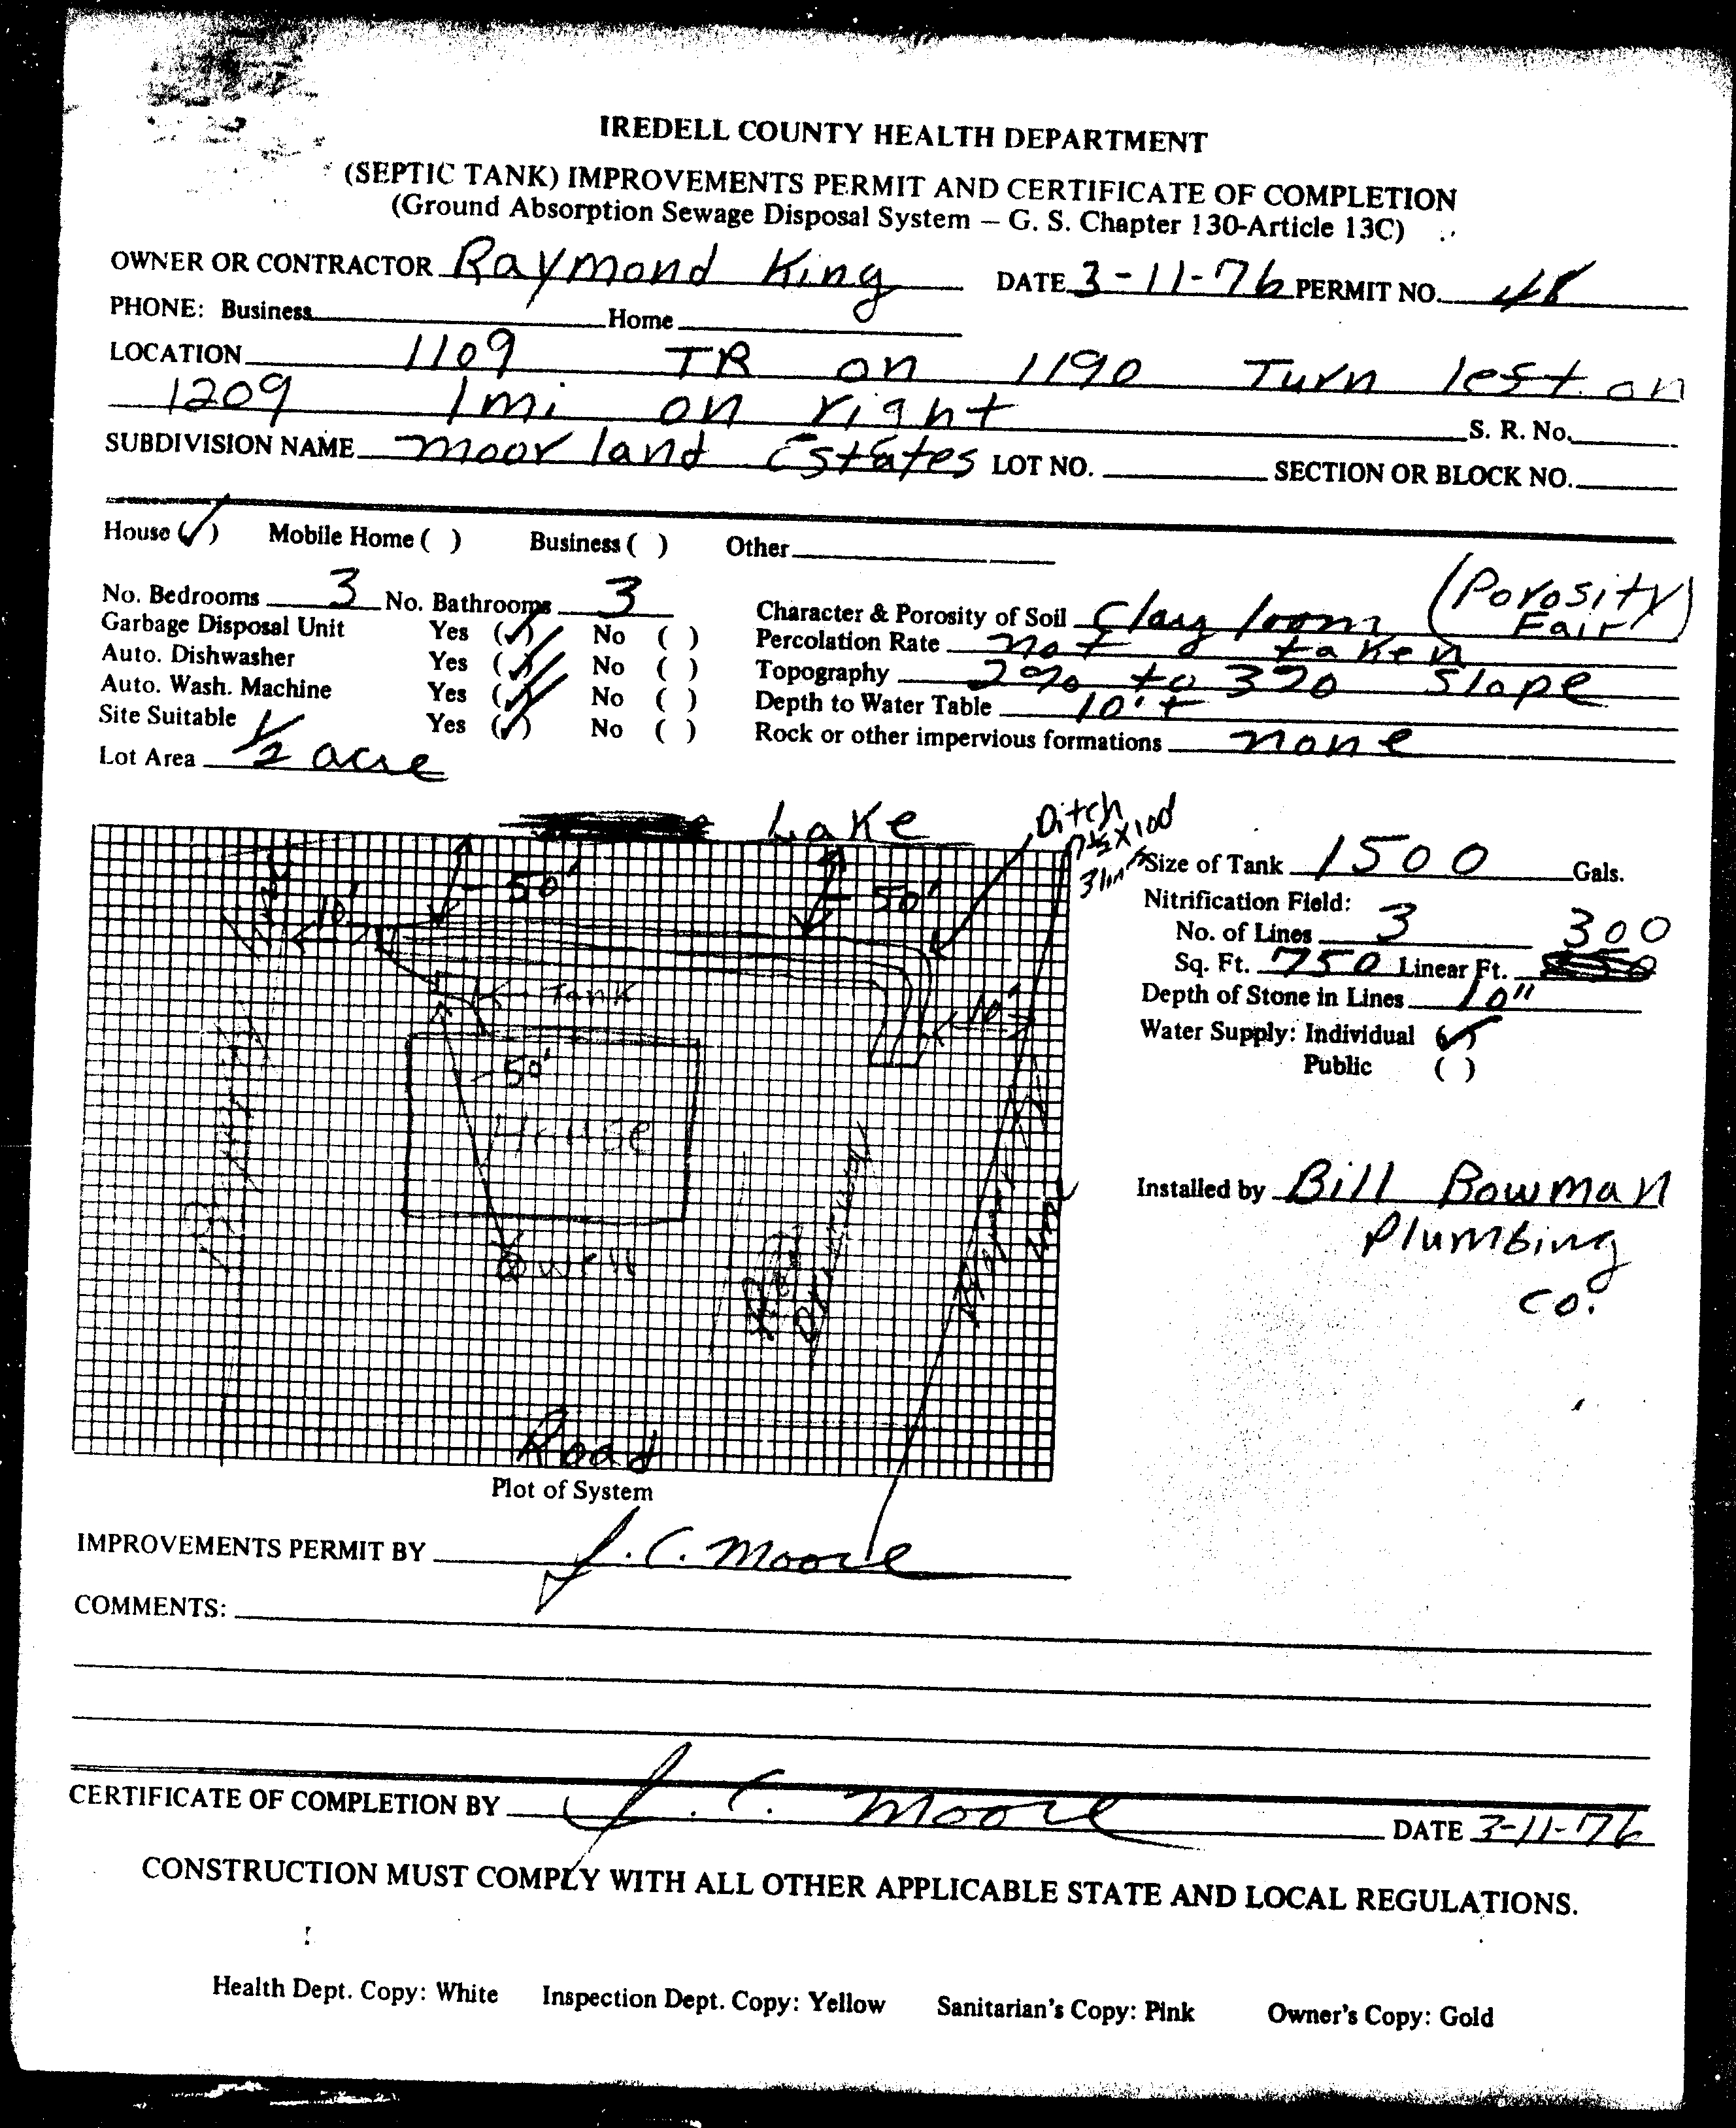 IREDELL COUNTY HEALTH DEPARTMENT
(SEPTIC TANK) IMPROVEMENTS PERMIT AND CERTIFICATE OF COMPLETION
(Ground Absorption Sewage Disposal System — G. S. Chapter 130-Article 13C)
OWNER OR CONTRACTOR Raymond King DATE 3-11-76 PERMIT NO. 48
PHONE: Business Home
LOCATION 1109 TR on 1190 Turn left on
1209 1 mi on right S. R. No.
SUBDIVISION NAME Moorland Estates LOT NO. SECTION OR BLOCK NO.
House (✓) Mobile Home ( ) Business ( ) Other
No. Bedrooms 3 No. Bathrooms 3
Garbage Disposal Unit Yes (✓) No ( )
Auto. Dishwasher Yes (✓) No ( )
Auto. Wash. Machine Yes (✓) No ( )
Site Suitable Yes (✓) No ( )
Lot Area 1/2 acre
Character & Porosity of Soil Clay loom (Porosity Fair)
Percolation Rate not taken
Topography 2% to 3% Slope
Depth to Water Table 10'+
Rock or other impervious formations none
Lake
Ditch
3 lines
50'
50'
10'
Tank
10'
50'
House
Well
Road
Plot of System
Size of Tank 1500 Gals.
Nitrification Field:
No. of Lines 3
300
Sq. Ft. 750 Linear Ft.
Depth of Stone in Lines 10"
Water Supply: Individual (✓)
Public ( )
Installed by Bill Bowman
Plumbing
Co.
IMPROVEMENTS PERMIT BY J. C. Moore
COMMENTS:
CERTIFICATE OF COMPLETION BY J. C. Moore DATE 3-11-76
CONSTRUCTION MUST COMPLY WITH ALL OTHER APPLICABLE STATE AND LOCAL REGULATIONS.
Health Dept. Copy: White Inspection Dept. Copy: Yellow Sanitarian's Copy: Pink Owner's Copy: Gold